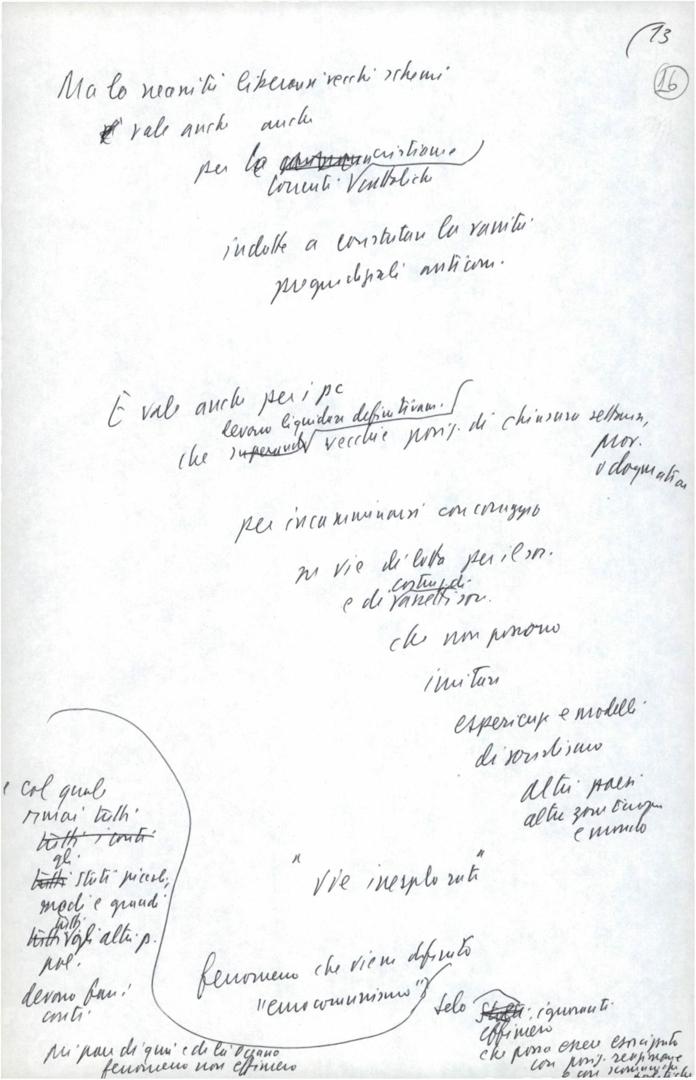 13
16
Ma la necessità liberarsi vecchi schemi
vale anche anche
per le cristiane
correnti cattoliche
indotte a constatare la vanità
pregiudiziali anticom.
È vale anche per i pc
devono liquidare definitivam.
che superando vecchie posiz. di chiusura settaria,
prov.
o dogmatica
per incamminarsi con coraggio
su vie di lotta per il soc.
costruz. di
e di società soc.
che non possono
imitare
esperienze e modelli
di socialismo
altri paesi
altre zone Europa
e mondo
"vie inesplorate"
fenomeno che viene definito
"eurocomunismo"
e col quale
ormai tutti
tutti i conti
gli
tutti stati piccoli,
medi e grandi
tutti
tutti gli altri p.
pol.
devono fare i
conti
mi pare di qui e di là Oceano
fenomeno non effimero
Solo ignoranti
effimero
che possa essere esorcizzato
con posiz.
o con scomuniche